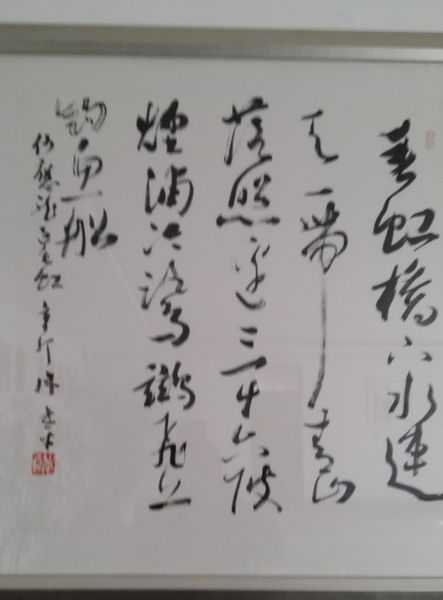 垂虹橋下水連
天一帶青山
落照邊三十六陂
煙浦冷鷺鷥飛上
釣魚船
何應龍垂虹